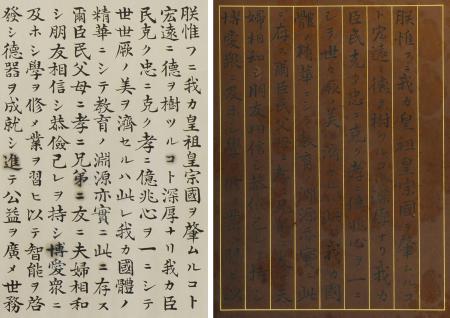 朕惟フニ我カ皇祖皇宗國ヲ肇ムルコト
宏遠ニ德ヲ樹ツルコト深厚ナリ我カ臣
民克ク忠ニ克ク孝ニ億兆心ヲ一ニシテ
世世厥ノ美ヲ濟セルハ此レ我カ國體ノ
精華ニシテ教育ノ淵源亦實ニ此ニ存ス
爾臣民父母ニ孝ニ兄弟ニ友ニ夫婦相和
シ朋友相信シ恭儉己レヲ持シ博愛衆ニ
及ホシ學ヲ修メ業ヲ習ヒ以テ智能ヲ啓
發シ德器ヲ成就シ進テ公益ヲ廣メ世務
朕惟フニ我カ皇祖皇宗國ヲ肇ムルコ
ト宏遠ニ德ヲ樹ツルコト深厚ナリ我カ
臣民克ク忠ニ克ク孝ニ億兆心ヲ一ニ
シテ世々厥ノ美ヲ濟セルハ此レ我カ國
體ノ精華ニシテ教育ノ淵源亦實ニ此
ニ存ス爾臣民父母ニ孝ニ兄弟ニ友ニ夫
婦相和シ朋友相信シ恭儉己レヲ持シ
博愛衆ニ及ホシ學ヲ修メ業ヲ習ヒ以